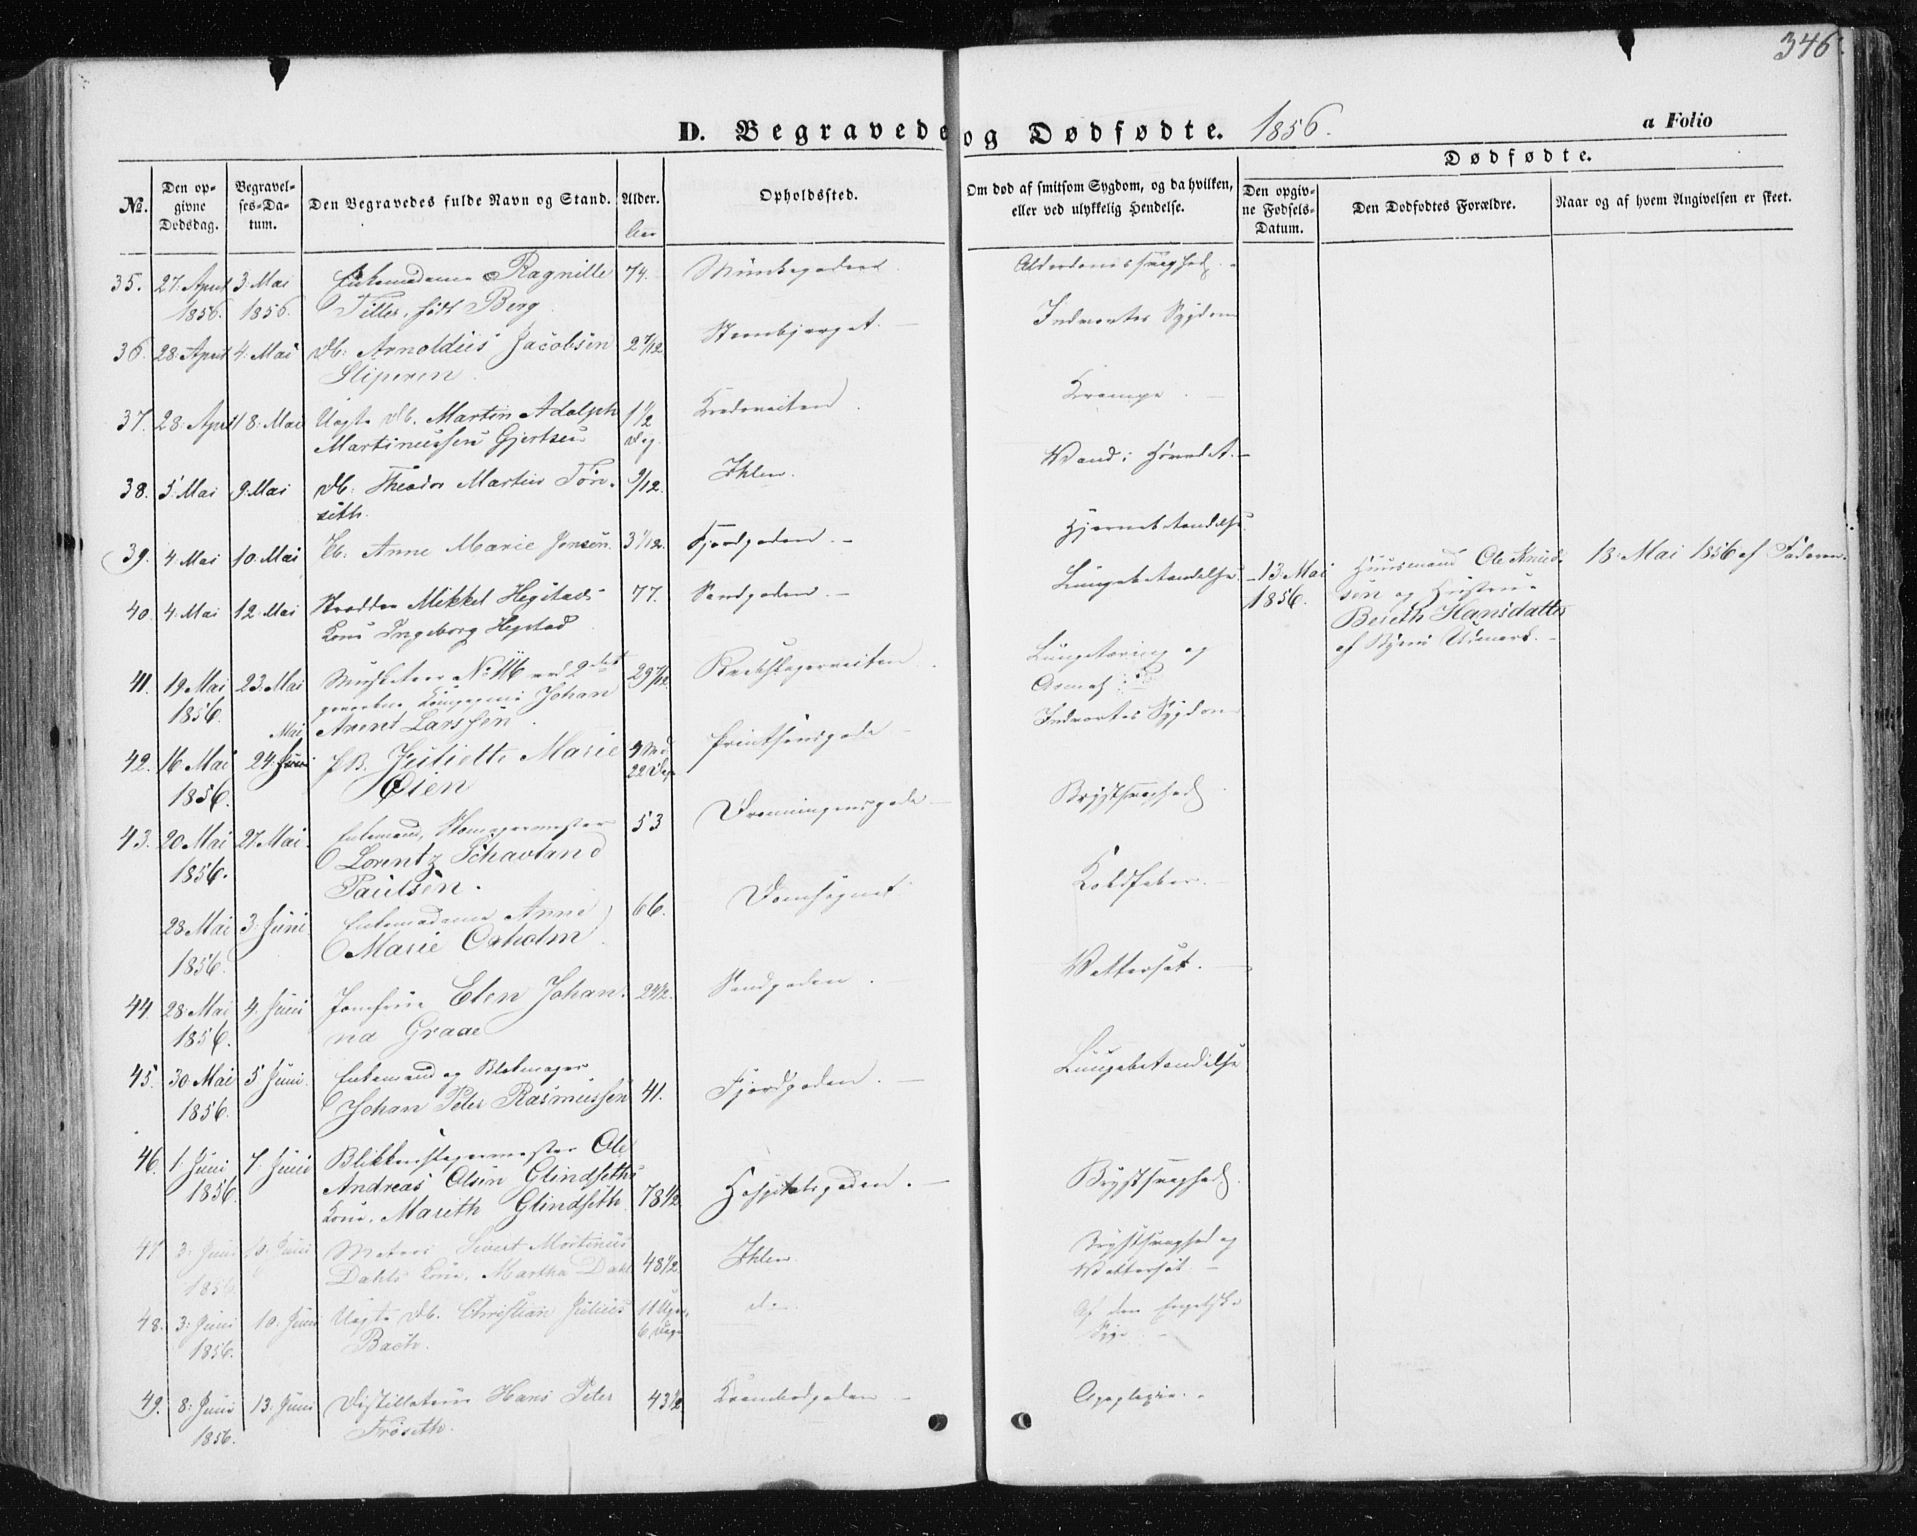 346.
D. Begravede og Dødfødte. 1856.
a Folio
Dødfødte.
No. Den opgivne Dødsdag. Begravelses-Datum. Den Begravedes fulde Navn og Stand. Alder. Opholdssted. Om død af smitsom Sygdom, og da hvilken, eller ved ulykkelig Hendelse. Den opgivne Fødsels-Datum. Den Dødfødtes Forældre. Naar og af hvem Angivelsen er skeet.
Aar
35. 27: April 3: Mai Enkemadame Ragnille 74. Munkegaden. Alderdomssvaghed.
1856. 1856. Tiller, født Berg.
36. 28: April 4: Mai Db: Arnoldus Jacobsen 2 7/12 Steenbjerget. Indvortes Sygdom
Sliperen.
37. 28: April 8: Mai Uægte Db. Martin Adolph 1 1/2 Krampe.
Martinussen Gjertsen Dag
38. 5: Mai 9: Mai Db: Theodor Martin Tön- 9/12. Ihlen. Vand i Hovedet.
seth.
39. 4: Mai 10: Mai Pb. Anne Marie Jensen. 3 1/12. Fjordgaden. Hjernebetændelse
40. 4: Mai 12: Mai Skrædder Mikkel Hegstads 77. Sandgaden. Lungebetændelse
Kone Ingeborg Hegstad
13 Mai Huusmand Ole Knud- 13: Mai 1856 af Faderen.
1856. sen og Hustrue
Bereth Hansdatter
af Byens Udmark.
41. 19: Mai 23: Mai Musketeer No 116 ved 2det 29 7/12 Lungetæring og
1856. gevorbne Kompagni Johan
Arent Larssen.
42. 16: Mai 24: Mai P.B. Juliette Marie Printsensgade Indvortes Sygdom
1856. Öien 22 Dage
43. 20 Mai 27: Mai. Enkemand, Skomagermester 53 Dronningensgade Brystsvaghed.
1856. Lorentz Schavland
Paulsen.
28 Mai 3: Juni Enkemadame Anne 66. Domsognet Koldfeber.
1856. Marie Oxholm
44. 28: Mai 4: Juni Jomfrue Elen Johan- 24 1/2. Sandgaden. Vattersot.
1856. na Graae
45. 30 Mai 5 Juni. Enkemand og Blokmager 41. Fjordgaden. Lungebetændelse
1856. Johan Peter Rasmussen
46. 1 Juni 7: Juni Blikkenslagermester Ole
1856. Andreas Olsen Glindseths
Kone, Mareth Glindseth 78 1/2 Hospitalsgaden. Brystsvaghed.
47 3: Juni 10: Juni Sivert Mortinus Brystsvaghed og
1856. Dahls Kone, Martha Dahl 48 1/2 Ihlen Vattersot.
48. 3: Juni 10. Juni Uægte Db. Christian Julius 11 Uger do Af den Engelske
1856. Bach. 6 Dage Syge.
49. 8: Juni 13: Juni Destillateur Hans Peter 43 1/2 Krambodgaden Apoplexie.
1856. Fröseth.